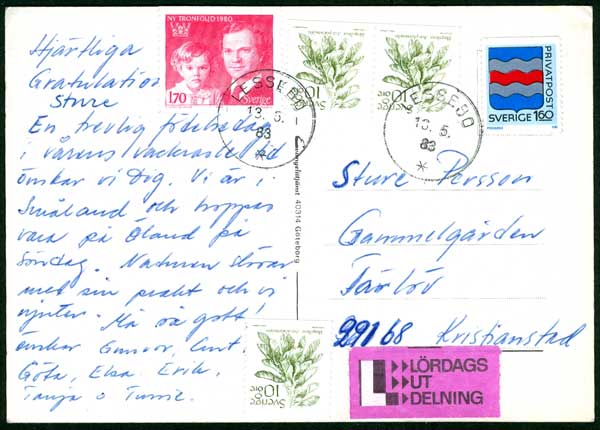 Hjärtliga
Gratulationer
Sture
En trevlig födelsedag
i vårens vackraste tid
önskar vi Dig. Vi är i
Småland och hoppas
vara på Öland på
Söndag. Naturen slösar
med sin prakt och vi
njuter. Må så gott!
önskar Gunvor, Curt,
Göta, Elsa Erik,
Tanja o
NY TRONFÖLJD 1980
170
Sverige
Sverige
10 öre
Sverige
10 öre
LESSEBO
13. 5.
83
*
LESSEBO
13. 5.
83
*
PRIVATPOST
SVERIGE 160
40314 Göteborg
Sture Persson
Gammelgården
Färlöv
291 68 Kristianstad
Sverige
10 öre
L
LÖRDAGS
UT
DELNING